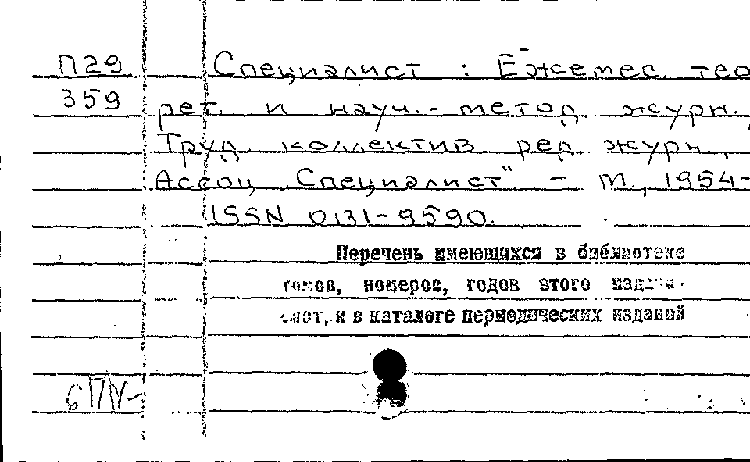 П29 Специалист : Ежемес. тео
359 рет. и науч.-метод. журн.,
Труд. коллектив ред. журн.,
Ассоц. "Специалист" - М., 1954-
ISSN 0131-9590.
Перечень имеющихся в библиотеке
томов, номеров, годов этого издания
см. в каталоге периодических изданий